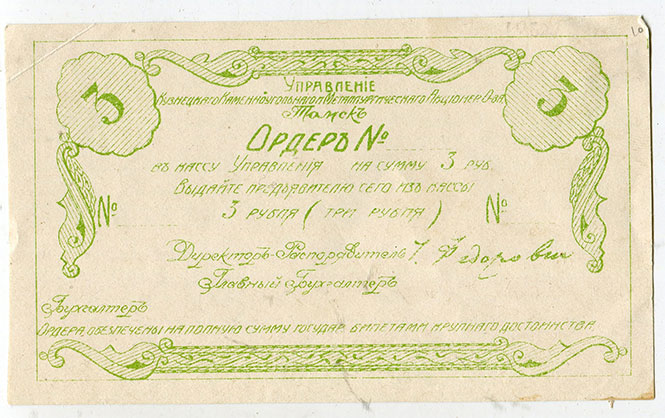 10
3 3
Управленіе
Кузнецкаго Каменноугольнаго и Металлургическаго Акціонер. О-ва
Томскъ
Ордеръ №
въ кассу Управленія на сумму 3 руб.
Выдайте предъявителю сего изъ кассы
№ 3 рубля (три рубля) №
Директоръ-Распорядитель Федорович
Главный Бухгалтеръ
Бухгалтеръ
Ордера обеспечены на полную сумму государ. билетами крупнаго достоинства.